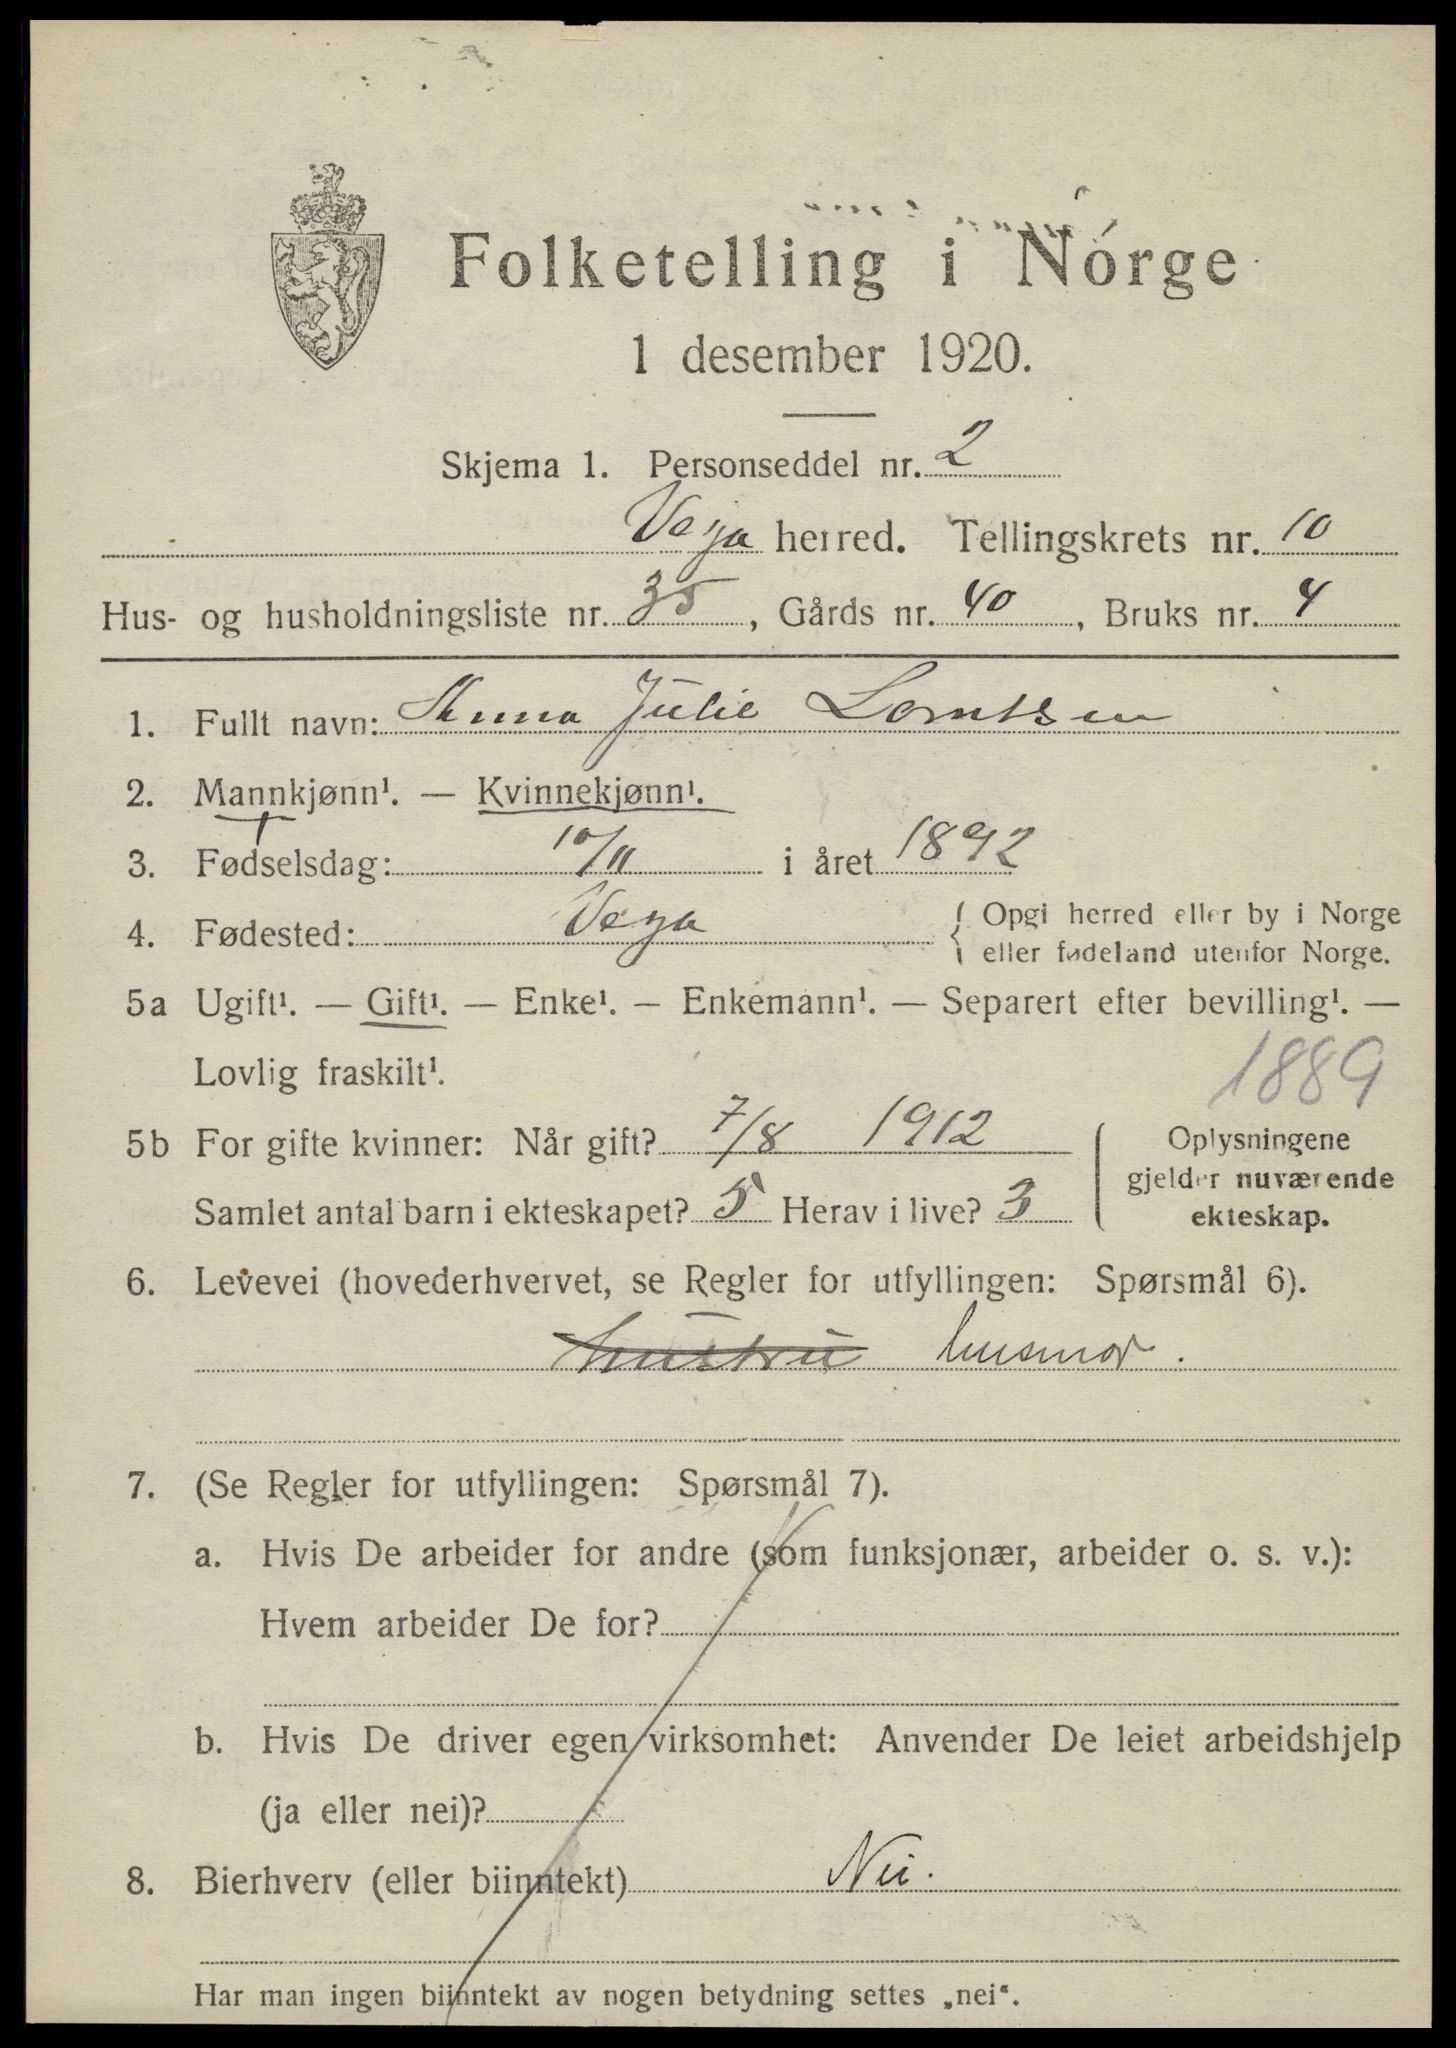 Folketelling i Norge
1 desember 1920.
Skjema 1. Personseddel nr. 2
Vega herred. Tellingskrets nr. 10
Hus- og husholdningsliste nr. 35, Gårds nr. 40, Bruks nr. 4
1. Fullt navn: Anna Julie Lorntsen
2. Mannkjønn¹. — Kvinnekjønn¹.
3. Fødselsdag: 10/11 i året 1892
4. Fødested: Vega { Opgi herred eller by i Norge
eller fødeland utenfor Norge.
5a Ugift¹. — Gift¹. — Enke¹. — Enkemann¹. — Separert efter bevilling¹. —
Lovlig fraskilt¹.
1889
5b For gifte kvinner: Når gift? 7/8 1912
Samlet antal barn i ekteskapet? 5 Herav i live? 3
Oplysningene
gjelder nuværende
ekteskap.
6. Levevei (hovederhvervet, se Regler for utfyllingen: Spørsmål 6).
hustru husmor.
7. (Se Regler for utfyllingen: Spørsmål 7).
a. Hvis De arbeider for andre (som funksjonær, arbeider o. s. v.):
Hvem arbeider De for?
b. Hvis De driver egen virksomhet: Anvender De leiet arbeidshjelp
(ja eller nei)?
8. Bierhverv (eller biinntekt) Nei.
Har man ingen biinntekt av nogen betydning settes „nei“.